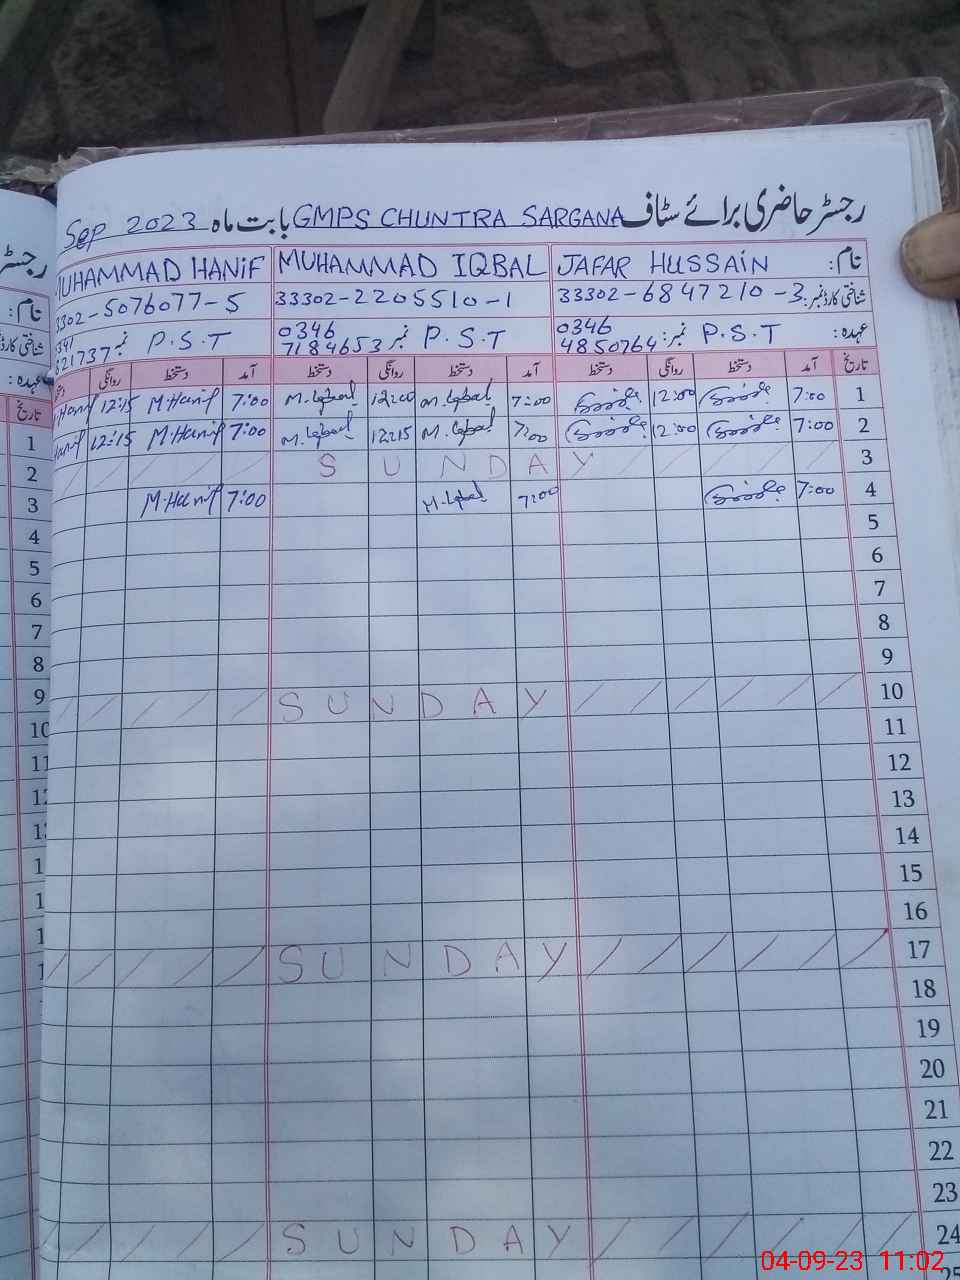 رجسٹر حاضری برائے سٹاف GMPS CHUNTRA SARGANA بابت ماہ Sep 2023
نام: JAFAR HUSSAIN MUHAMMAD IQBAL MUHAMMAD HANIF
شناختی کارڈ نمبر: 33302-6847210-3 33302-2205510-1 3302-5076077-5
عہدہ: P.S.T نمبر: 0346 4850764 P.S.T نمبر 0346 7184653 P.S.T نمبر 821737
تاریخ آمد دستخط روانگی دستخط آمد دستخط روانگی دستخط آمد دستخط روانگی
1 7:00 12:00 7:00 M.Iqbal 12:00 M.Iqbal 7:00 M.Hanif 12:15 Hanif
2 7:00 12:00 7:00 M.Iqbal 12:15 M.Iqbal 7:00 M.Hanif 12:15 Hanif
3 SUNDAY
4 7:00 7:00 M.Iqbal 7:00 M.Hanif
5
6
7
8
9
10 SUNDAY
11
12
13
14
15
16
17 SUNDAY
18
19
20
21
22
23
24 SUNDAY
25
نام:
عہدہ:
تاریخ
1
2
3
4
5
6
7
8
9
10
11
04-09-23 11:02